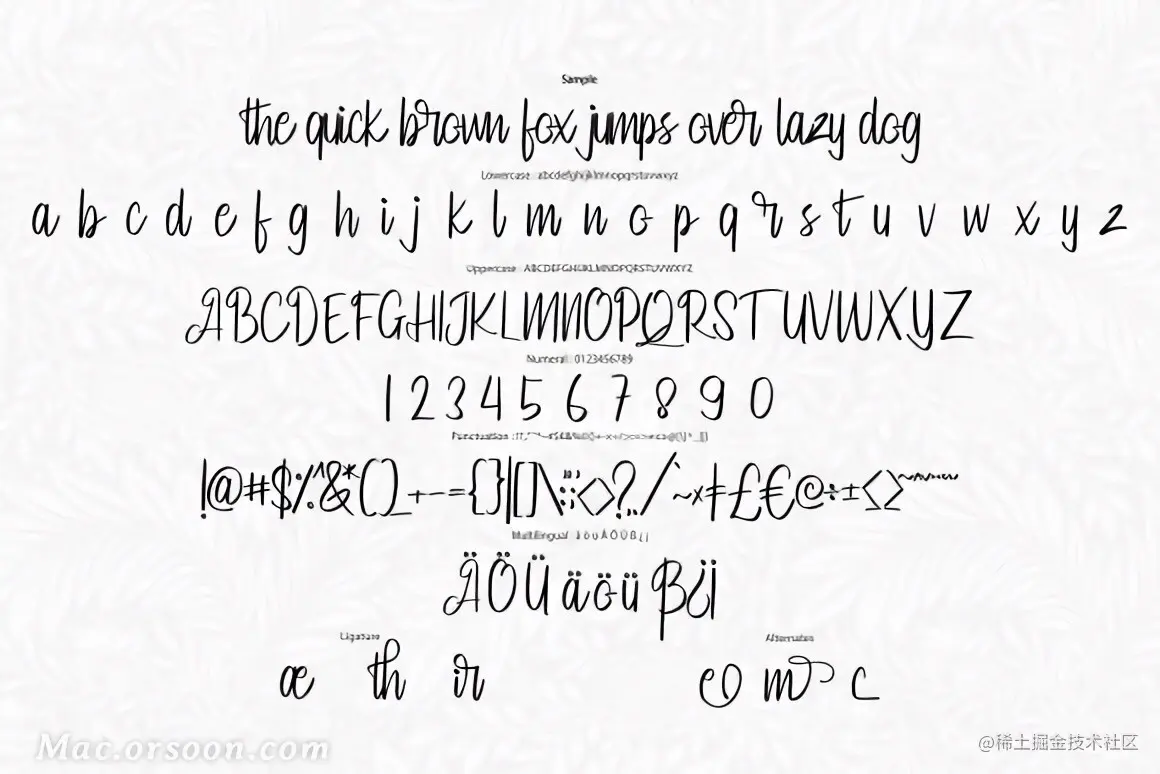 Sample
the quick brown fox jumps over lazy dog
Lowercase : abcdefghijklmnopqrstuvwxyz
a b c d e f g h i j k l m n o p q r s t u v w x y z
Uppercase : ABCDEFGHIJKLMNOPQRSTUVWXYZ
ABCDEFGHIJKLMNOPQRSTUVWXYZ
Numeral : 0123456789
1 2 3 4 5 6 7 8 9 0
Punctuation :
!@#$%^&*()_+-–={}|[]\":;'<>?,./
Multilingual : ä ö ü Ä Ö Ü ß ¿ ¡
ÄÖÜäöüß¿¡
Ligature
Alternates
æ th ir
e m c
Mac.orsoon.com
@稀土掘金技术社区